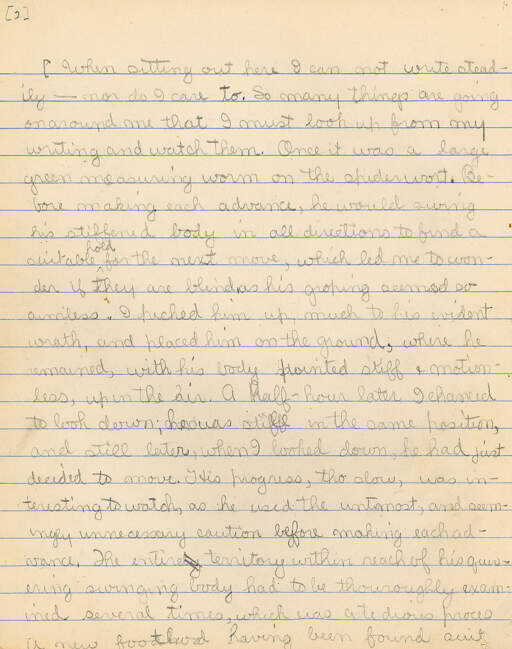 [2]
[ When sitting out here I can not write stead-
ily — nor do I care to. So many things are going
on around me that I must look up from my
writing and watch them. Once it was a large
green measuring worm on the spiderwort. Be-
fore making each advance, he would swing
his stiffened body in all directions to find a
suitable hold for the next move, which led me to won-
der if they are blind, as his groping seemed so
aimless. I picked him up, much to his evident
wrath, and placed him on the ground, where he
remained, with his body pointed stiff & motion-
less, up in the air. A half-hour later I chanced
to look down; he was still in the same position,
and still later, when I looked down, he had just
decided to move. His progress, tho slow, was in-
teresting to watch, as he used the utmost, and seem-
ingly unnecessary caution before making each ad-
vance. The entire territory within reach of his quiv-
ering swinging body had to be thouroughly exam-
ined several times, which was a tedious proces
A new foothold having been found suit